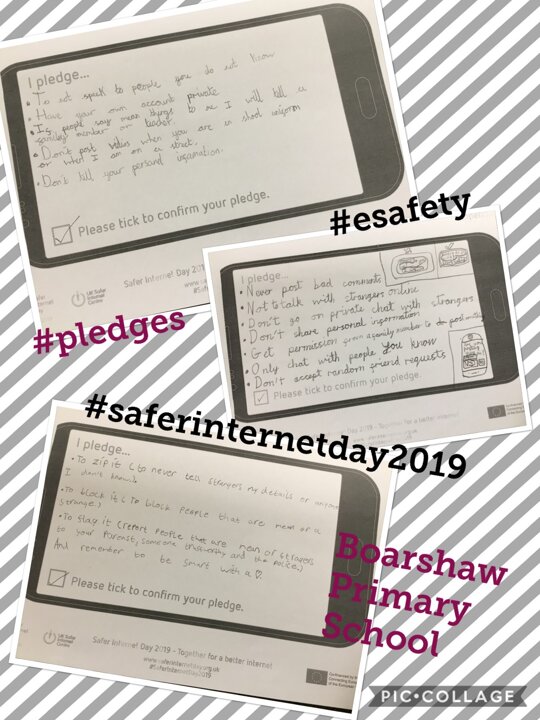 I pledge...
• To not speak to people you do not know
• Have your own account private
• If people say mean things to me I will tell a
family member or teacher.
• Don't post videos when you are in school uniform
or when I am on a street.
• Don't tell your personal information.
Please tick to confirm your pledge.
UK Safer
Internet
Centre
Safer Internet Day 2019
#esafety
I pledge...
• Never post bad comments
• Not to talk with strangers online
• Don't go on private chat with strangers
• Don't share personal information
• Get permission from a family member to post
• Only chat with people you know
• Don't accept random friend requests
Please tick to confirm your pledge.
Safer Internet Day 2019 - Together for a better internet
#pledges
#saferinternetday2019
I pledge...
• To zip it (to never tell strangers my details or anyone
I don't know.)
• To block it (To block people that are mean or a
strange.)
• To flag it (report people that are mean or strangers
to your Parents, someone trustworthy and the police.)
And remember to be smart with a
Please tick to confirm your pledge.
UK Safer
Internet
Centre
Safer Internet Day 2019 - Together for a better internet
www.saferinternetday.org.uk
#SaferInternetDay2019
Boarshaw
Primary
School
PIC•COLLAGE